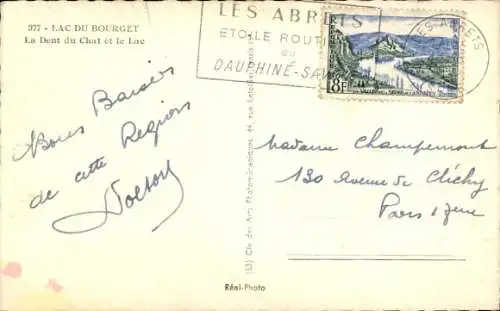 377 - LAC DU BOURGET
La Dent du Chat et le Lac
LES ABRETS
ETOILE ROUT
DU
DAUPHINÉ-SAV
8F
LES ABRETS
Bons Baisers
de cette Region
Madame Champemont
130 Avenue de Clichy
Paris 17eme
(53) Cie des Arts Photomécaniques
Réal-Photo